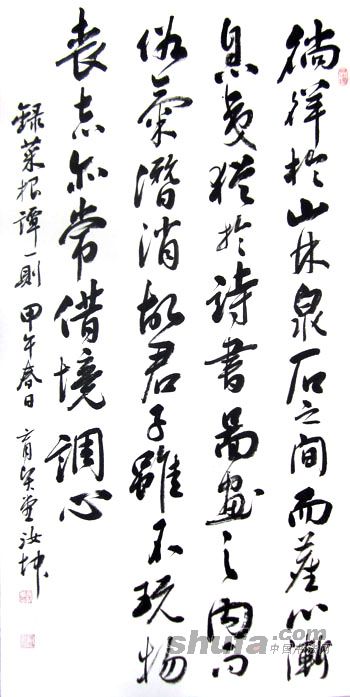 徜徉於山林泉石之間而塵心漸
息夷猶於詩書圖畫之內而
俗氣潛消故君子雖不玩物
喪志亦常借境調心
録菜根譚一則 甲午春日 堂汝坤
shufa.com